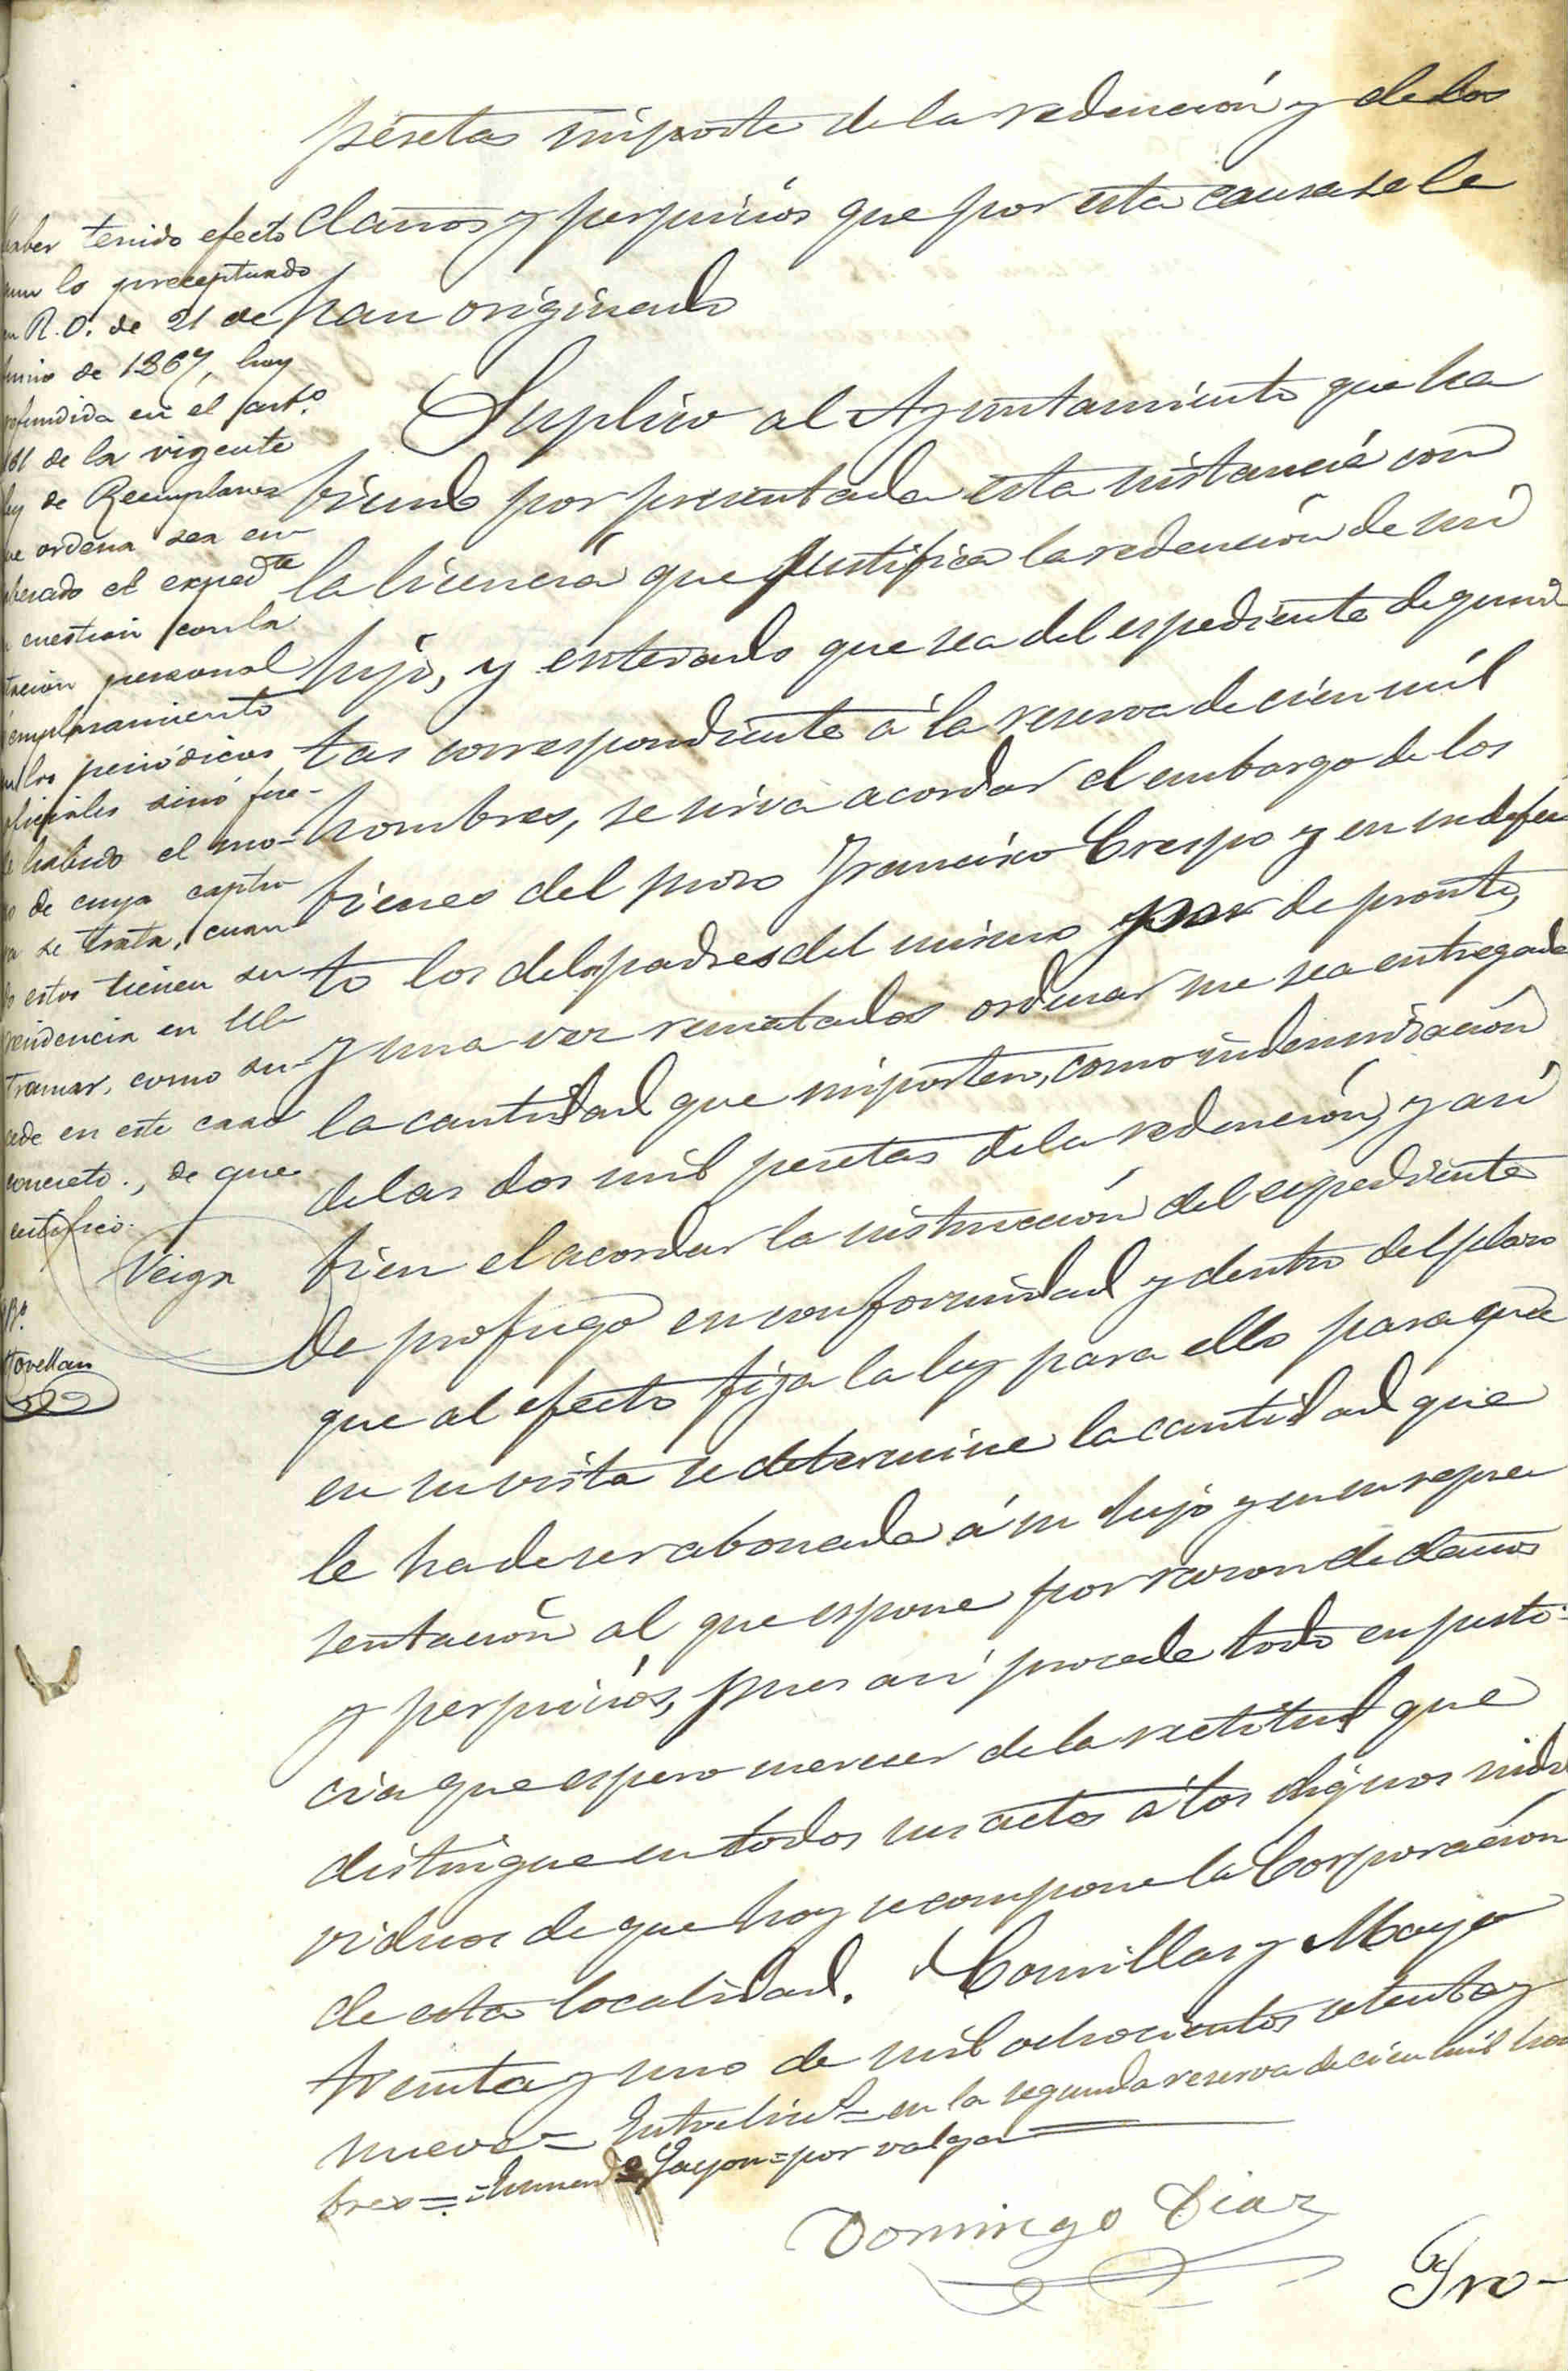 pesetas importe de la redención y de los
daños y perjuicios que por esta causa se le
han originado
Suplico al Ayuntamiento que ha
biendo por presentada esta instancia con
la licencia que justifica la redención de mi
hijo, y enterado que sea del espediente de quin
tas correspondiente á la reserva de cien mil
hombres, se sirva acordar el embargo de los
bienes del mozo Francisco Crespo y en su defec
to los de los padres del mismo por de pronto,
y una vez rematados ordenar me sea entregada
la cantidad que importen, como indemnización
de las dos mil pesetas de la redención, y así
bien el acordar la instrucción del espediente
de profugo en conformidad y dentro del plazo
que al efecto fija la ley para ello para que
en su vista se determine la cantidad que
le ha de ser abonada á su hijo y en su repre
sentación al que espone por razon de daños
y perjuicios, pues así procede todo en justi-
cia que espero merecer de la rectitud que
distingue en todos sus actos á los dignos indi
viduos de que hoy se compone la Corporación
de esta localidad. Comillas y Mayo
treinta y uno de mil ochocientos setenta y
nueve = Entrelin.s = en la segunda reserva de cien mil hom
bres =
por valga
Domingo Diaz
haber tenido efecto
lo preceptuado
en R. O. de 21 de
Junio de 1867, hoy
refundida en el art.o
de la vigente
ley de Reemplazos
que ordena sea en
cabezado el exped.te
en cuestion con la
citacion personal
emplazamiento
en los periódicos
oficiales sinó fue-
se habido el mo-
zo de cuya captu
ra se trata, cuan
do estos tienen su
residencia en Ul
tramar, como su-
cede en este caso
concreto., de que
certifico.
Veiga
V.º B.º
Movellan
Pro-